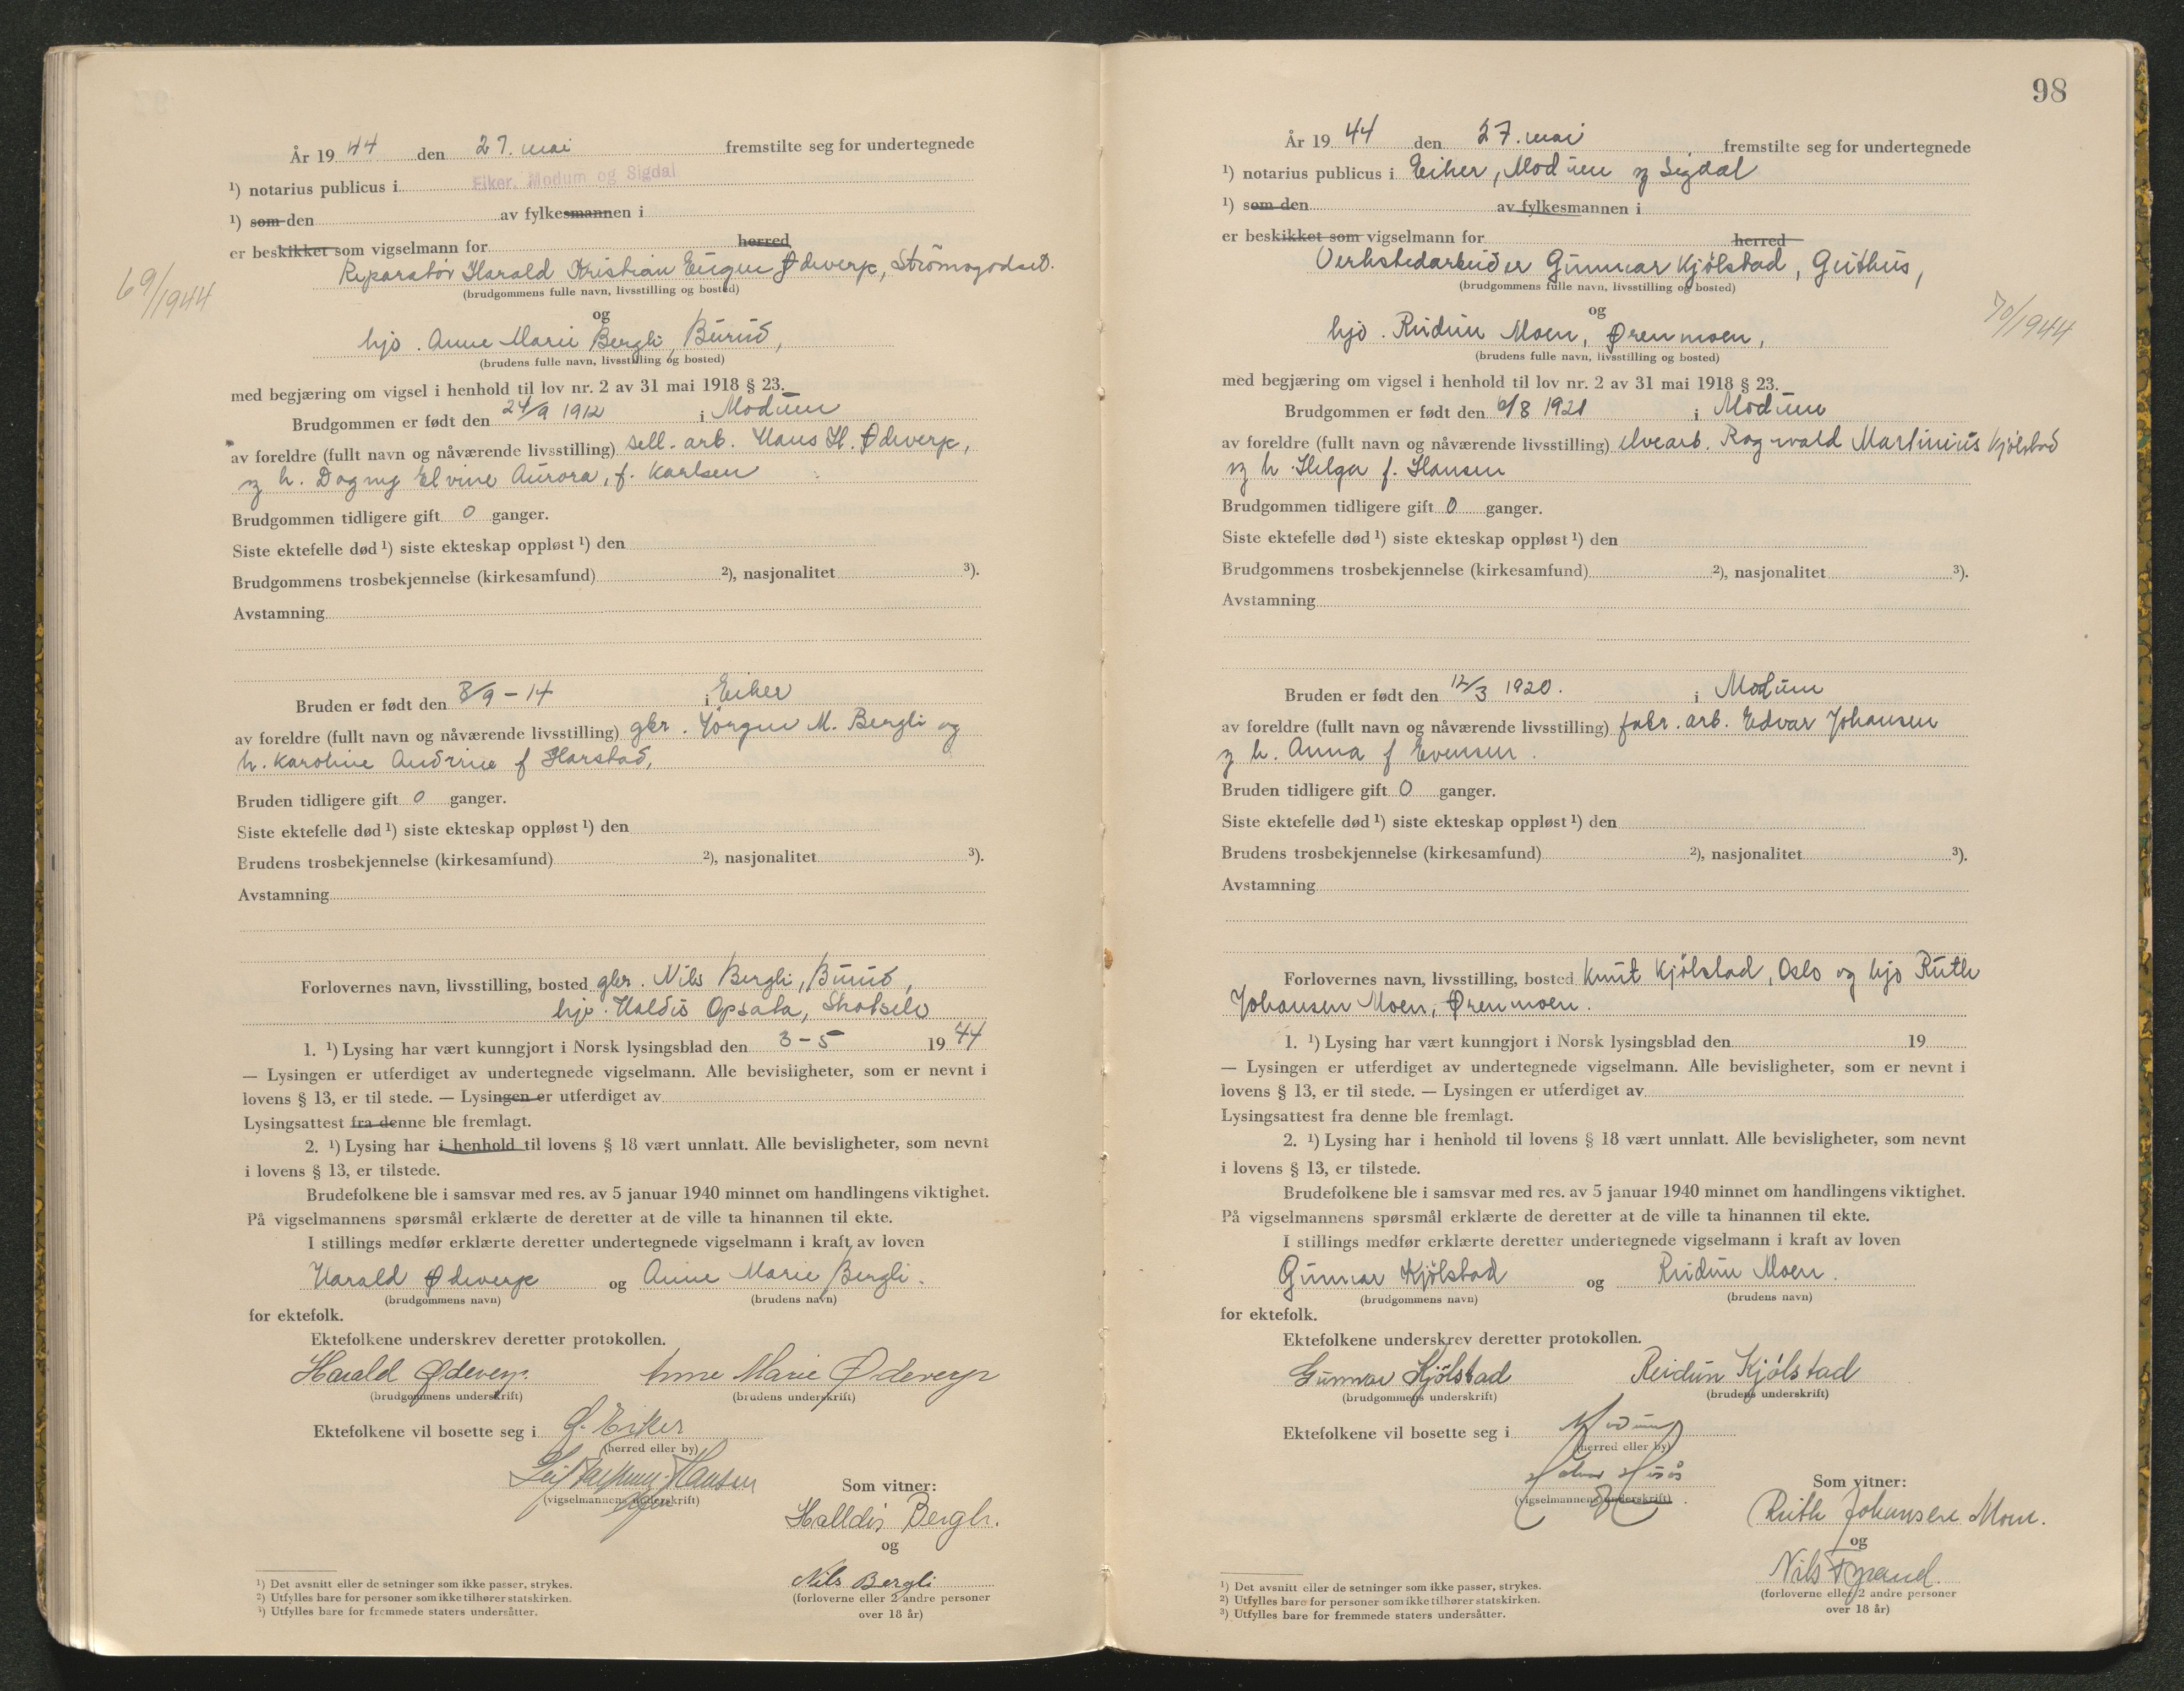 År 19 44 den 27. mai fremstilte seg for undertegnede
¹) notarius publicus i Eiker, Modum og Sigdal
¹) som den av fylkesmannen i
er beskikket som vigselmann for herred
Reparatör Harald Kristian Eugen Ødeverp, Strömsgodset.
(brudgommens fulle navn, livsstilling og bosted)
69/1944
og
hjv. Anne Marie Bergli, Burud,
(brudens fulle navn, livsstilling og bosted)
med begjæring om vigsel i henhold til lov nr. 2 av 31 mai 1918 § 23.
Brudgommen er født den 24/9 1912 i Modum
av foreldre (fullt navn og nåværende livsstilling) sell. arb. Hans H. Ødeverp,
og h. Dagny Elvine Aurora, f. Karlsen
Brudgommen tidligere gift 0 ganger.
Siste ektefelle død ¹) siste ekteskap oppløst ¹) den
Brudgommens trosbekjennelse (kirkesamfund) ²), nasjonalitet ³).
Avstamning
Bruden er født den 8/9 - 14 i Eiker
av foreldre (fullt navn og nåværende livsstilling) gbr. Jörgen M. Bergli og
h. Karoline Andrine f Harstad,
Bruden tidligere gift 0 ganger.
Siste ektefelle død ¹) siste ekteskap oppløst ¹) den
Brudens trosbekjennelse (kirkesamfund) ²), nasjonalitet ³).
Avstamning
Forlovernes navn, livsstilling, bosted gbr. Nils Bergli, Burud,
hjv. Haldis Opsata, Skotselv
1. ¹) Lysing har vært kunngjort i Norsk lysingsblad den 3-5 19 44
— Lysingen er utferdiget av undertegnede vigselmann. Alle bevisligheter, som er nevnt i
lovens § 13, er til stede. — Lysingen er utferdiget av
Lysingsattest fra denne ble fremlagt.
2. ¹) Lysing har i henhold til lovens § 18 vært unnlatt. Alle bevisligheter, som nevnt
i lovens § 13, er tilstede.
Brudefolkene ble i samsvar med res. av 5 januar 1940 minnet om handlingens viktighet.
På vigselmannens spørsmål erklærte de deretter at de ville ta hinannen til ekte.
I stillings medfør erklærte deretter undertegnede vigselmann i kraft av loven
Harald Ødeverp og Anne Marie Bergli.
(brudgommens navn) (brudens navn)
for ektefolk.
Ektefolkene underskrev deretter protokollen.
Harald Ødeverp. Anne Marie Ødeverp
(brudgommens underskrift) (brudens underskrift)
Ektefolkene vil bosette seg i Ø. Eiker
(herred eller by)
Leif Hansen
(vigselmannens underskrift)
Som vitner:
Halldis Bergli.
og
Nils Bergli
(forloverne eller 2 andre personer
over 18 år)
¹) Det avsnitt eller de setninger som ikke passer, strykes.
²) Utfylles bare for personer som ikke tilhører statskirken.
³) Utfylles bare for fremmede staters undersåtter.
98
År 19 44 den 27. mai fremstilte seg for undertegnede
¹) notarius publicus i Eiker, Modum og Sigdal
¹) som den av fylkesmannen i
er beskikket som vigselmann for herred
Verkstedarbeider Gunnar Kjölstad, Geithus,
(brudgommens fulle navn, livsstilling og bosted)
og
70/1944
hjv. Reidun Moen, Ørenmoen,
(brudens fulle navn, livsstilling og bosted)
med begjæring om vigsel i henhold til lov nr. 2 av 31 mai 1918 § 23.
Brudgommen er født den 6/8 1921 i Modum
av foreldre (fullt navn og nåværende livsstilling) elvearb. Ragnvald Martinius Kjölstad
og h. Helga f. Hansen
Brudgommen tidligere gift 0 ganger.
Siste ektefelle død ¹) siste ekteskap oppløst ¹) den
Brudgommens trosbekjennelse (kirkesamfund) ²), nasjonalitet ³).
Avstamning
Bruden er født den 12/3 1920. i Modum
av foreldre (fullt navn og nåværende livsstilling) fabr. arb. Edvar Johansen
og h. Anna f Evensen.
Bruden tidligere gift 0 ganger.
Siste ektefelle død ¹) siste ekteskap oppløst ¹) den
Brudens trosbekjennelse (kirkesamfund) ²), nasjonalitet ³).
Avstamning
Forlovernes navn, livsstilling, bosted Knut Kjölstad, Oslo og hjv Ruth
Johansen Moen, Ørenmoen.
1. ¹) Lysing har vært kunngjort i Norsk lysingsblad den 19
— Lysingen er utferdiget av undertegnede vigselmann. Alle bevisligheter, som er nevnt i
lovens § 13, er til stede. — Lysingen er utferdiget av
Lysingsattest fra denne ble fremlagt.
2. ¹) Lysing har i henhold til lovens § 18 vært unnlatt. Alle bevisligheter, som nevnt
i lovens § 13, er tilstede.
Brudefolkene ble i samsvar med res. av 5 januar 1940 minnet om handlingens viktighet.
På vigselmannens spørsmål erklærte de deretter at de ville ta hinannen til ekte.
I stillings medfør erklærte deretter undertegnede vigselmann i kraft av loven
Gunnar Kjölstad og Reidun Moen.
(brudgommens navn) (brudens navn)
for ektefolk.
Ektefolkene underskrev deretter protokollen.
Gunnar Kjölstad Reidun Kjölstad
(brudgommens underskrift) (brudens underskrift)
Ektefolkene vil bosette seg i Modum
(herred eller by)
(vigselmannens underskrift)
Som vitner:
Ruth Johansen Moen.
og
Nils
(forloverne eller 2 andre personer
over 18 år)
¹) Det avsnitt eller de setninger som ikke passer, strykes.
²) Utfylles bare for personer som ikke tilhører statskirken.
³) Utfylles bare for fremmede staters undersåtter.